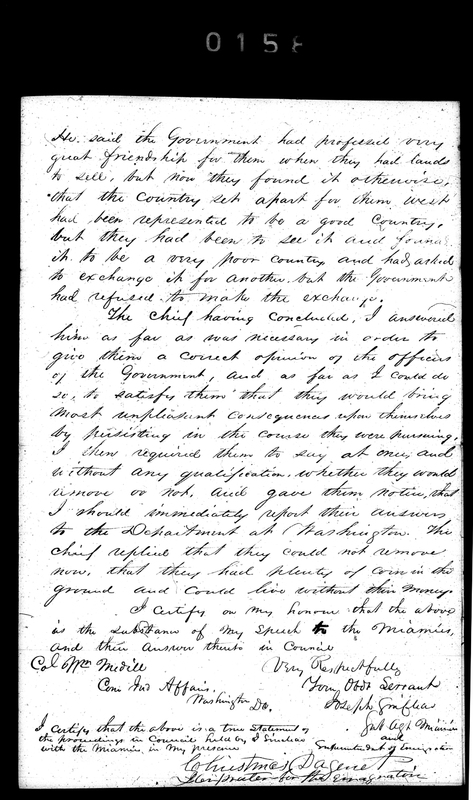 0158
He said the Government had professed very
great friendship for them when they had lands
to sell, but now they found it otherwise,
that the Country set apart for them west
had been represented to be a good Country,
but they had been to see it and found
it to be a very poor country and had asked
to exchange it for another, but the Government
had refused to make the exchange.
The Chief having concluded, I answered
him as far as was necessary in order to
give them a correct opinion of the officers
of the Government, and as far as I could do
so, to satisfy them that they would bring
most unpleasant consequences upon themselves
by persisting in the course they were pursuing.
I then required them to say at once, and
without any qualification, whether they would
remove or not, and gave them notice, that
I should immediately report their answers
to the Department at Washington. The
chief replied that they could not remove
now, that they had plenty of corn in the
ground and could live without their money
I certify on my honour that the above
is the substance of my speech to the Miamies,
and their answer thereto in Council
Col Wm Medill Very Respectfully
Com Ind Affairs. Your Obdt Servant
Washington Joseph Sinclear
Sub Agt Miamies
I certify that the above is a true statement of and
the proceedings in Council held by J Sinclear Superintendent of Emigration
with the Miamies in my presence
Christmas Dagenet
Interpreter for the emigration